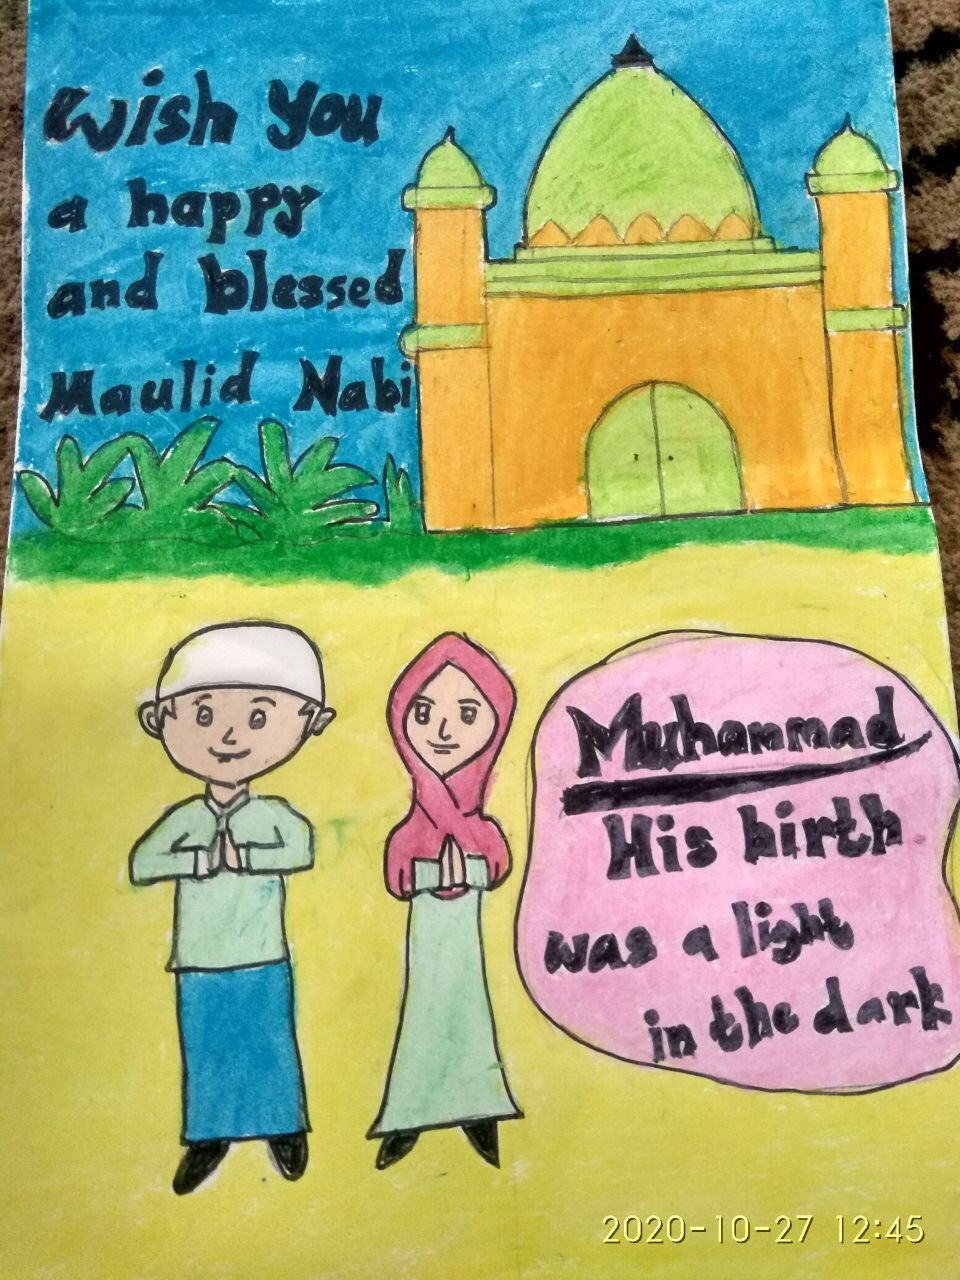 Wish You
a happy
and blessed
Maulid Nabi
Muhammad
His birth
was a light
in the dark
2020-10-27 12:45